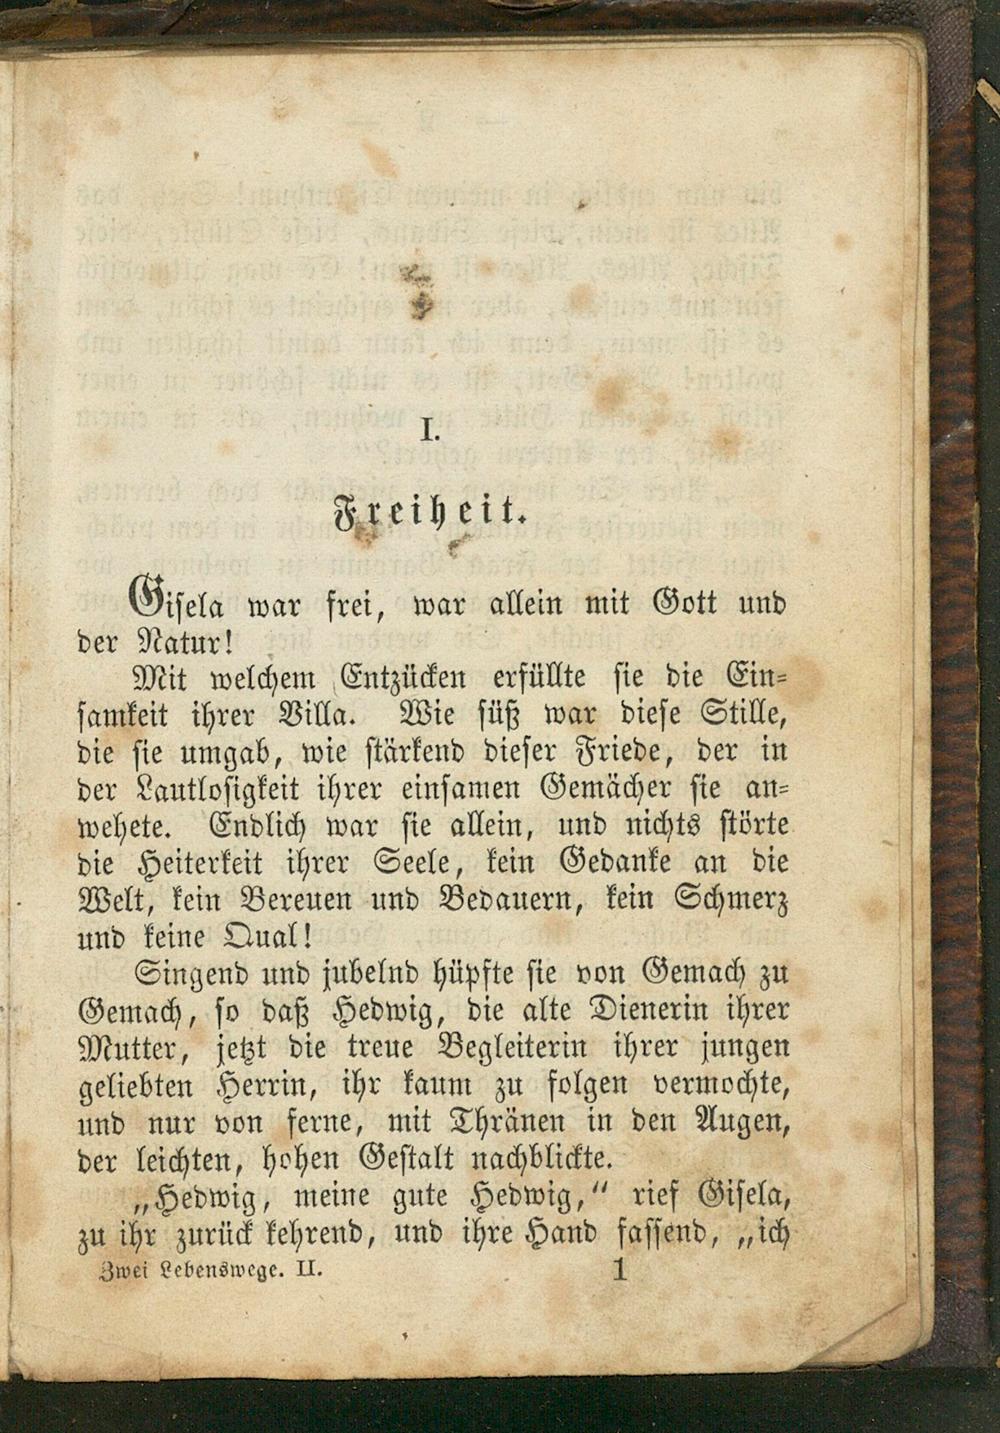 I.
Freiheit.
Gisela war frei, war allein mit Gott und
der Natur!
Mit welchem Entzücken erfüllte sie die Ein-
samkeit ihrer Villa. Wie süß war diese Stille,
die sie umgab, wie stärkend dieser Friede, der in
der Lautlosigkeit ihrer einsamen Gemächer sie an-
wehete. Endlich war sie allein, und nichts störte
die Heiterkeit ihrer Seele, kein Gedanke an die
Welt, kein Bereuen und Bedauern, kein Schmerz
und keine Qual!
Singend und jubelnd hüpfte sie von Gemach zu
Gemach, so daß Hedwig, die alte Dienerin ihrer
Mutter, jetzt die treue Begleiterin ihrer jungen
geliebten Herrin, ihr kaum zu folgen vermochte,
und nur von ferne, mit Thränen in den Augen,
der leichten, hohen Gestalt nachblickte.
„Hedwig, meine gute Hedwig,“ rief Gisela,
zu ihr zurück kehrend, und ihre Hand fassend, „ich
Zwei Lebenswege. II. 1